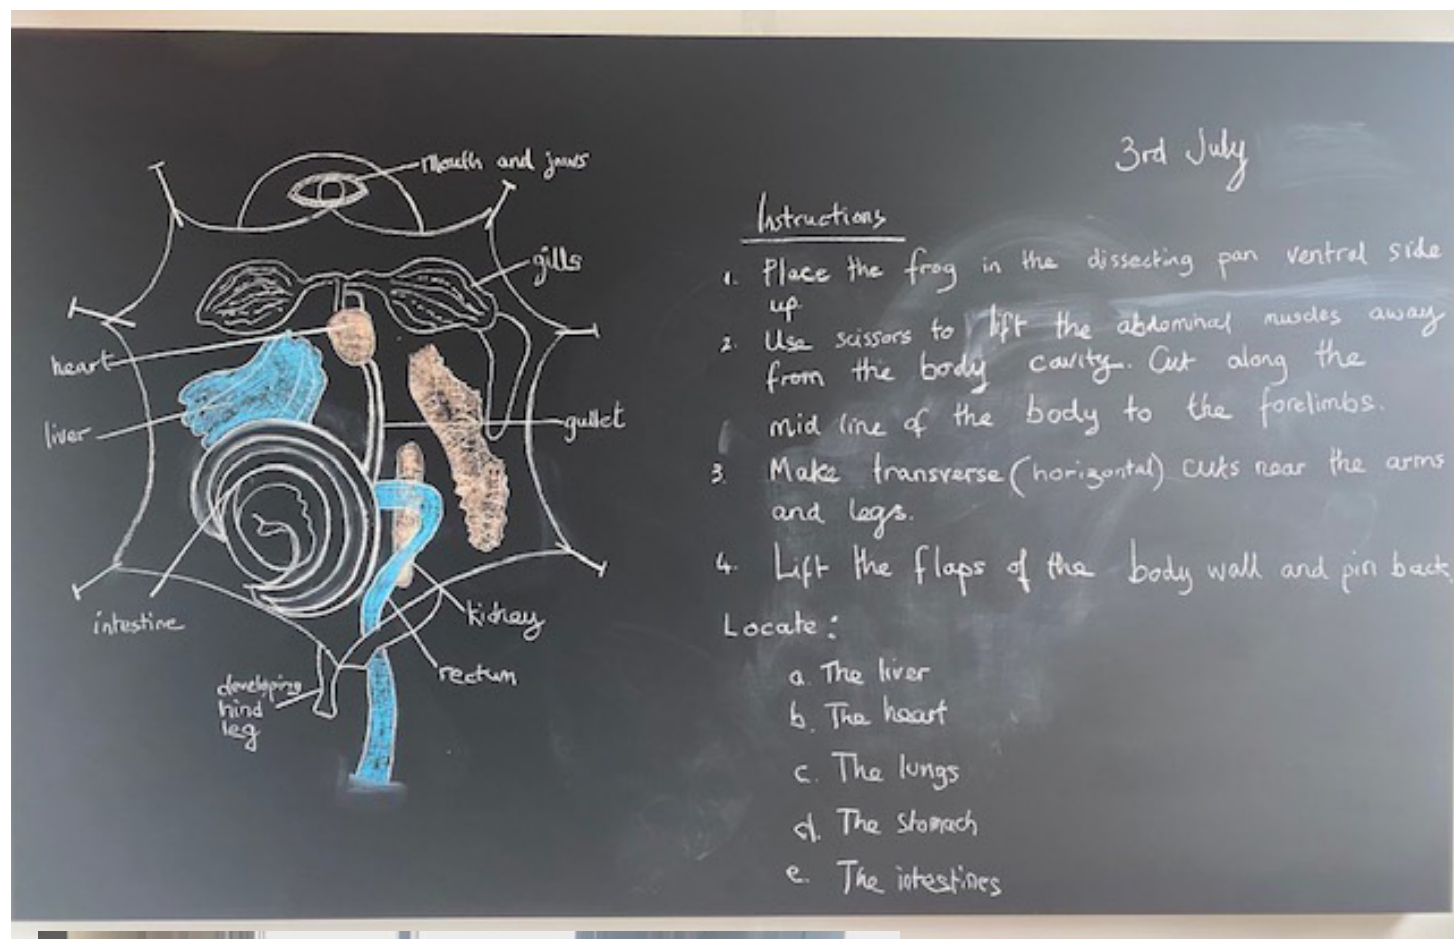 mouth and jaws
gills
heart
liver
gullet
intestine
kidney
rectum
developing
hind
leg
3rd July
Instructions
1. Place the frog in the dissecting pan ventral side
up
2. Use scissors to lift the abdominal muscles away
from the body cavity. Cut along the
mid line of the body to the forelimbs.
3. Make transverse (horizontal) cuts near the arms
and legs.
4. Lift the flaps of the body wall and pin back
Locate:
a. The liver
b. The heart
c. The lungs
d. The stomach
e. The intestines